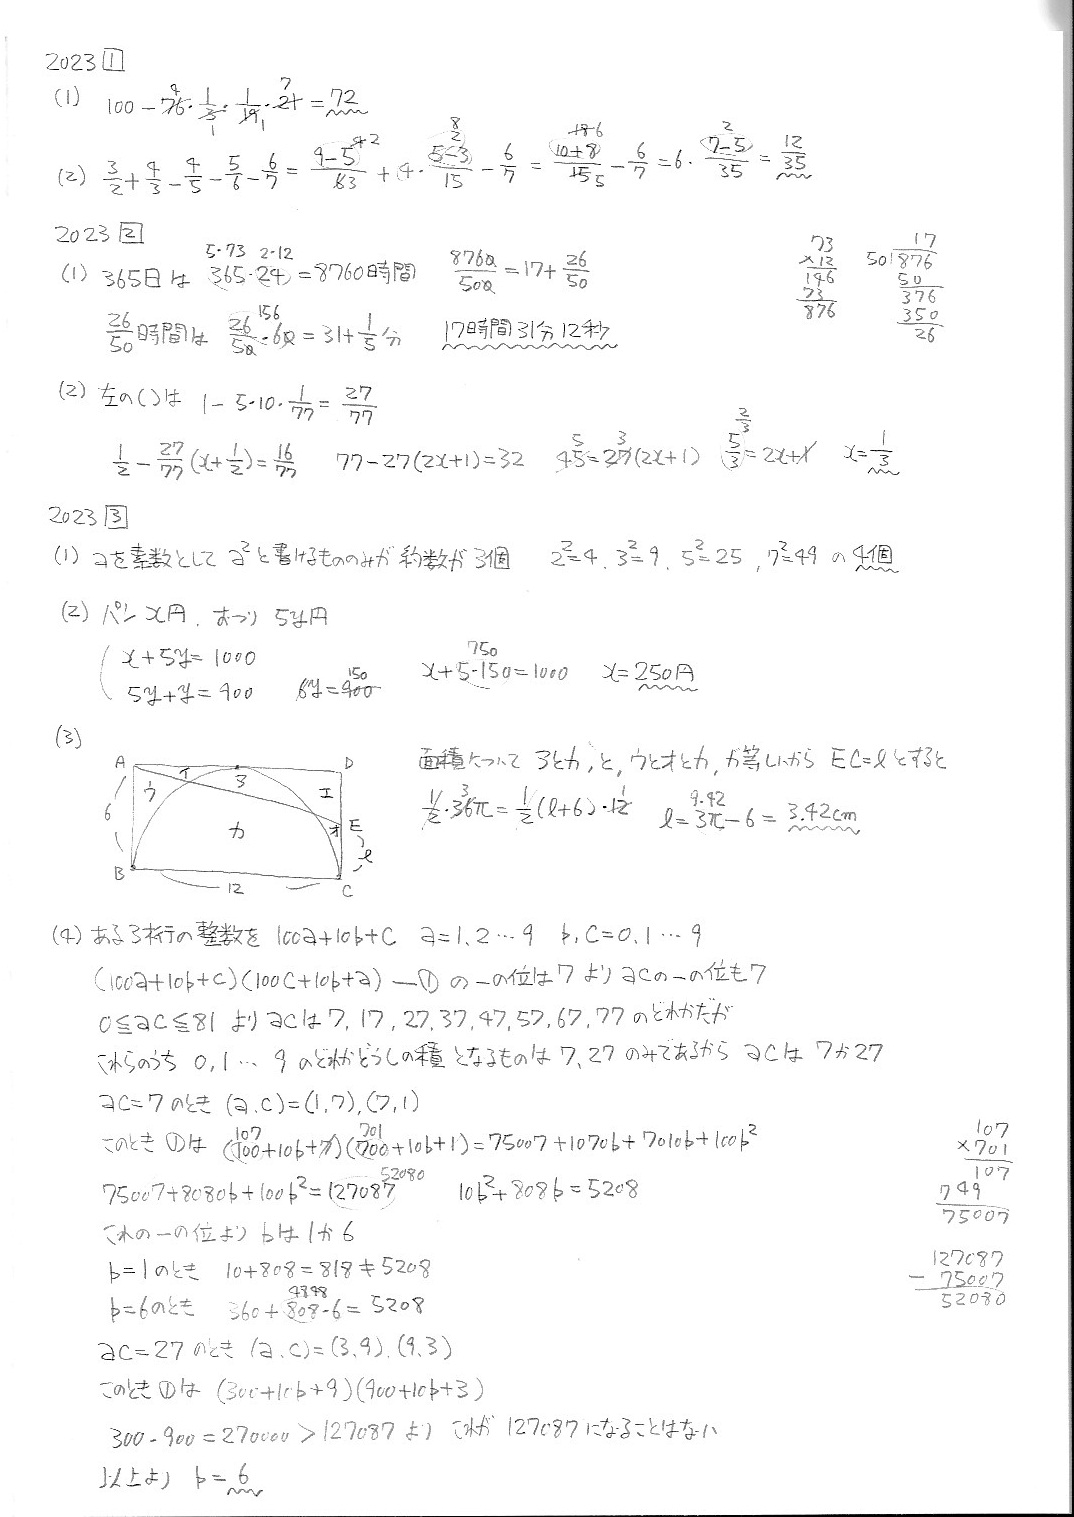 2023 1
(1) 100 - 76・1/3・1/19・21 = 72
(2) 3/2 + 4/3 - 4/5 - 5/6 - 6/7 = (9-5)/63 + 4・(5-3)/15 - 6/7 = (10+8)/15 - 6/7 = 6・(7-5)/35 = 12/35
2023 2
(1) 365日は 365・24 = 8760時間 8760/500 = 17 + 26/50
5・73 2・12
73 ×12 146 73 876
17 50)876 50 376 350 26
26/50時間は 26/50・60 = 31 + 1/5分 17時間31分12秒
156
(2) 左の( )は 1 - 5・10・1/77 = 27/77
1/2 - 27/77(x+1/2) = 16/77 77-27(2x+1)=32 45=27(2x+1) 5/3=2x+1 x=1/3
2023 3
(1) aを素数として a²と書けるもののみが約数が3個 2²=4, 3²=9, 5²=25, 7²=49 の 4個
(2) パン x円, おつり 5y円
x+5y=1000
5y+y=900 6y=900 x+5・150=1000 x=250円
150 750
(3)
A イ 3 D
ウ エ
6 カ オ E
B 12 C l
面積について 3とカ, と, ウとオとカ, が等しいから EC=lとすると
1/2・36π = 1/2(l+6)・12 l=3π-6 = 3.42cm
9.42
(4) ある3桁の整数を 100a+10b+c a=1,2…9 b,c=0,1…9
(100a+10b+c)(100c+10b+a) ―① の一の位は7より acの一の位も7
0≦ac≦81 より acは 7,17,27,37,47,57,67,77 のどれかだが
これらのうち 0,1…9 のどれかどうしの積となるものは 7,27 のみであるから acは 7か27
ac=7のとき (a,c)=(1,7),(7,1)
このとき ①は (100+10b+7)(700+10b+1)=75007+1070b+7010b+100b²
107 701
75007+8080b+100b²=127087 10b²+808b=5208
52080
107 ×701 107 749 75007
これの一の位より bは1か6
b=1のとき 10+808=818≠5208
b=6のとき 360+808・6=5208
4848
127087 - 75007 52080
ac=27のとき (a,c)=(3,9),(9,3)
このとき①は (300+10b+9)(900+10b+3)
300・900=270000>127087 より これが127087になることはない
以上より b=6